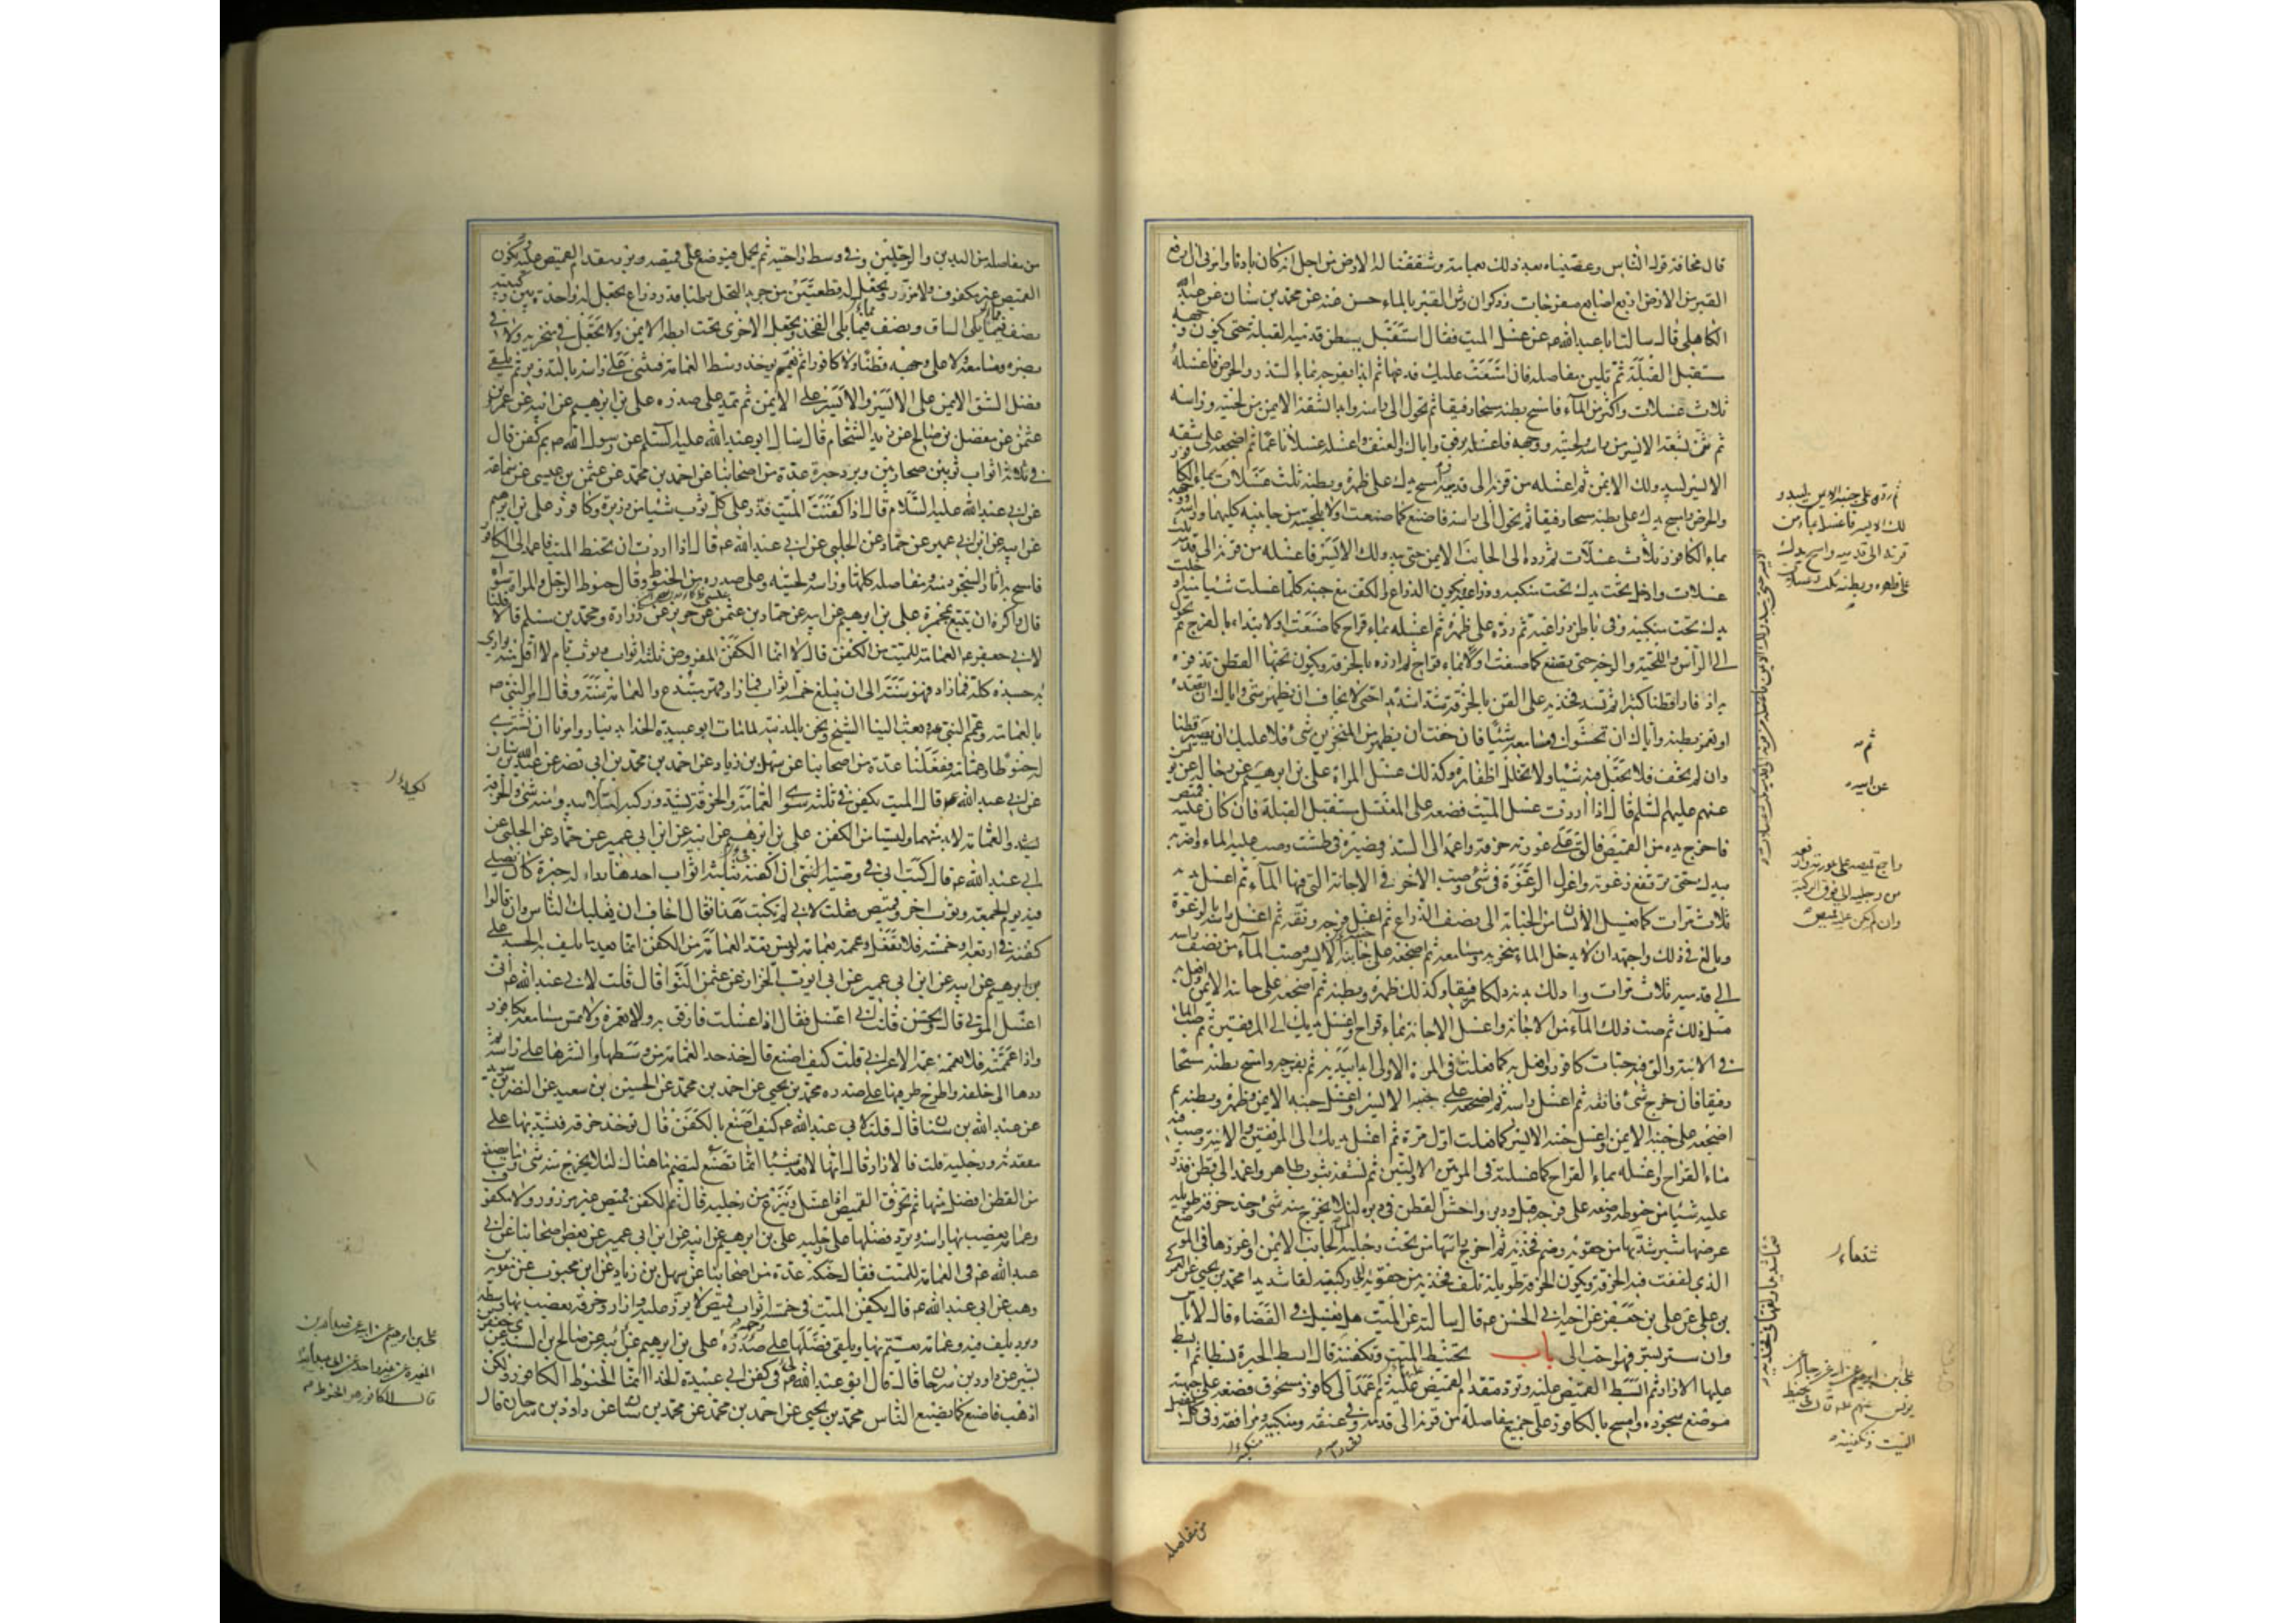 قال مخافة قول الناس وعصبناه بعد ذلك بعمامة وشققنا له الارض من اجل انه كان بادنا وامرني ان ارفع
القبر من الارض اربع اصابع مفرجات وذكر ان رش القبر بالماء حسن عنه عن محمد بن سنان عن عبد الله
الكاهلي قال سالت ابا عبد الله عه عن غسل الميت فقال استقبل ببطن قدميه القبلة حتى يكون وجهه
مستقبل القبلة ثم تلين مفاصله فان امتنعت عليك فدعها ثم ابدا بفرجه بماء السدر والحرض فاغسله
ثلاث غسلات واكثر من الماء فامسح بطنه مسحا رفيقا ثم تحول الى راسه وابدا بشقه الايمن من لحيته وراسه
ثم ثن بشقه الايسر من راسه ولحيته ووجهه فاغسله برفق واياك والعنف واغسله غسلا ناعما ثم اضجعه على شقه
الايسر ليبدو لك الايمن ثم اغسله من قرنه الى قدميه وامسح يدك على ظهره وبطنه ثلث غسلات بماء الكافور
والحرض وامسح يدك على بطنه مسحا رفيقا ثم تحول الى راسه فاصنع كما صنعت اولا بلحيته من جانبيه كليهما وراسه ووجهه
بماء الكافور ثلاث غسلات ثم رده الى الجانب الايمن حتى يبدو لك الايسر فاغسله من قرنه الى قدميه ثلث
غسلات وادخل يدك تحت منكبيه وذراعيه ويكون الذراع والكف مع جنبه كلما غسلت شيئا منه ادخلت
يدك تحت منكبيه وفي باطن ذراعيه ثم رده على ظهره ثم اغسله بماء قراح كما صنعت اولا تبدا بالفرج ثم تحول
الى الراس واللحية والوجه حتى تصنع كما صنعت اولا بماء قراح ثم ازره بالخرقة ويكون تحتها القطن تذفره
به اذفارا قطنا كثيرا ثم تشد فخذيه على القطن بالخرقة شدا شديدا حتى لا تخاف ان يظهر شئ واياك ان تقعده
او تغمز بطنه واياك ان تحشو في مسامعه شيئا فان خفت ان يظهر من المنخرين شئ فلا عليك ان تصير قطنا
وان لم تخف فلا تجعل فيه شيئا ولا تخلل اظفاره وكذلك غسل المراة علي بن ابرهيم عن رجاله عن يونس
عنهم عليهم السلم قال اذا اردت غسل الميت فضعه على المغتسل مستقبل القبلة فان كان عليه قميص
فاخرج يده من القميص فالق على عورته خرقة واعمد الى السدر فصيره في طشت وصب عليه الماء واضربه
بيدك حتى ترتفع رغوته واعزل الرغوة في شئ وصب الاخر في الاجانة التي فيها الماء ثم اغسل يديه
ثلاث مرات كما يغسل الانسان من الجنابة الى نصف الذراع ثم اغسل فرجه ونقه ثم اغسل راسه بالرغوة
وبالغ في ذلك واجتهد ان لا يدخل الماء منخريه ومسامعه ثم اضجعه على جانبه الايسر وصب الماء من نصف راسه
الى قدميه ثلاث مرات وادلك بدنه دلكا رفيقا وكذلك ظهره وبطنه ثم اضجعه على جانبه الايمن وافعل به
مثل ذلك ثم صب ذلك الماء من الاجانة واغسل الاجانة بماء قراح واغسل يديك الى المرفقين ثم صب الماء
في الانية والق فيه حبات كافور وافعل به كما فعلت في المرة الاولى ابدا بيديه ثم بفرجه وامسح بطنه مسحا
رفيقا فان خرج شئ فانقه ثم اغسل راسه ثم اضجعه على جنبه الايسر واغسل جنبه الايمن وظهره وبطنه ثم
اضجعه على جنبه الايمن واغسل جنبه الايسر كما فعلت اول مرة ثم اغسل يديك الى المرفقين والانية وصب فيه
ماء القراح واغسله بماء القراح كما غسلته في المرتين الاولتين ثم نشفه بثوب طاهر واعمد الى قطن فذر
عليه شيئا من حنوط وضعه على فرجه قبل ودبر واحش القطن في دبره لئلا يخرج منه شئ وخذ خرقة طويلة
عرضها شبر فشدها من حقويه وضم فخذيه ثم اخرج راسها من تحت رجليه الى الجانب الايمن واغرزها في الموضع
الذي لففت فيه الخرقة وتكون الخرقة طويلة تلف فخذيه من حقويه الى ركبتيه لفا شديدا محمد بن يحيى عن العمركي
بن علي عن علي بن جعفر عن اخيه ابي الحسن عه قال سالته عن الميت هل يغسل في الفضاء قال لا باس
وان ستر بستر فهو احب الي باب تحنيط الميت وتكفينه قال ابسط الحبرة بسطا ثم ابسط
عليها الازار ثم ابسط القميص عليه وترد مقدم القميص عليه ثم اعمد الى كافور مسحوق فضعه على جبهته
موضع سجوده وامسح بالكافور على جميع مفاصله من قرنه الى قدمه وفي عنقه ومنكبيه ومرافقه وفي كل مفصل
من مفاصله
ثم رده على جنبه الايمن ليبدو
لك الايسر فاغسله بماء من
قرنه الى قدميه وامسح يدك
على ظهره وبطنه ثلث غسلات
ثم
عن ابيه
واجمع قميصه على عورته وارفعه
من رجليه الى فوق الركبة
وان لم يكن عليه قميص
شدها
علي بن ابرهيم عن ابيه عن رجاله عن
يونس عنهم عه قال في تحنيط
الميت وتكفينه
من مفاصله من اليدين والرجلين وفي وسط راحتيه ثم يحمل فيوضع على قميصه ويرد مقدم القميص عليه ويكون
القميص غير مكفوف ولا مزرر ويجعل له قطعتين من جريد النخل رطبا قدر ذراع يجعل له واحدة بين ركبتيه
نصف فيما يلي الساق ونصف فيما يلي الفخذ ويجعل الاخرى تحت ابطه الايمن ولا تجعل في منخريه ولا في
بصره ومسامعه ولا على وجهه قطنا ولا كافورا ثم يعمم يوخذ وسط العمامة فيثنى على راسه بالتدوير ثم يلقى
فضل الشق الايمن على الايسر والايسر على الايمن ثم تمد على صدره علي بن ابرهيم عن ابيه عن عمرو بن
عثمن عن مفضل بن صالح عن زيد الشحام قال سال ابو عبد الله عليه السلم عن رسول الله صه بم كفن قال
في ثلاثة اثواب ثوبين صحاريين وبرد حبرة عدة من اصحابنا عن احمد بن محمد عن عثمن بن عيسى عن سماعة
عن ابي عبد الله عليه السلام قال اذا كفنت الميت فذر على كل ثوب شيئا من ذريرة وكافور علي بن ابرهيم
عن ابيه عن ابن ابي عمير عن حماد عن الحلبي عن ابي عبد الله عه قال اذا اردت ان تحنط الميت فاعمد الى الكافور
فامسح به اثار السجود منه ومفاصله كلها وراسه ولحيته وعلى صدره من الحنوط وقال حنوط الرجل والمراة سواء
قال واكره ان يتبع بمجمرة علي بن ابرهيم عن ابيه عن حماد بن عثمن عن حريز عن زرارة ومحمد بن مسلم قالا قلنا
لابي جعفر عه العمامة للميت من الكفن قال لا انما الكفن المفروض ثلثة اثواب وثوب تام لا اقل منه يوارى
به جسده كله فما زاد فهو سنة الى ان يبلغ خمسة اثواب فما زاد فهو مبتدع والعمامة سنة وقال امر النبي صه
بالعمامة وعمم النبي صه وبعث الينا الشيخ ونحن بالمدينة لما مات ابو عبيدة الحذاء بدينار وامرنا ان نشتري
له حنوطا وعمامة ففعلنا عدة من اصحابنا عن سهل بن زياد عن احمد بن محمد بن ابي نصر عن عبد الله بن سنان
عن ابي عبد الله عه قال الميت يكفن في ثلثة سوى العمامة والخرقة يشد وركيه لكيلا يبدو منه شئ والخرقة
والعمامة لا بد منهما وليستا من الكفن علي بن ابرهيم عن ابيه عن ابن ابي عمير عن حماد عن الحلبي عن
ابي عبد الله عه قال كتب ابي في وصيته الي ان اكفنه في ثلثة اثواب احدها رداء له حبرة كان يصلي
فيه يوم الجمعة وثوب اخر وقميص فقلت لابي لم تكتب هذا فقال اخاف ان يغلبك الناس وان قالوا
كفنه في اربعة او خمسة فلا تفعل وعممه بعمامة وليس تعد العمامة من الكفن انما يعد ما يلف به الجسد علي
بن ابرهيم عن ابيه عن ابن ابي عمير عن ابي ايوب الخزاز عن عثمن النوا قال قلت لابي عبد الله عه اني
اغسل الموتى قال وتحسن قلت اني اغسل فقال اذا غسلت فارفق به ولا تغمزه ولا تمس مسامعه بكافور
واذا عممته فلا تعممه عمة الاعرابي قلت كيف اصنع قال خذ حد العمامة من وسطها وانشرها على راسه ثم
ردها الى خلفه واطرح طرفيها على صدره محمد بن يحيى عن احمد بن محمد عن الحسين بن سعيد عن النضر بن سويد
عن عبد الله بن سنان قال قلت لابي عبد الله عه كيف اصنع بالكفن قال توخذ خرقة فيشد بها على
مقعدته ورجليه قلت فالازار قال انها لا تعد شيئا انما تصنع لتضم ما هناك لئلا يخرج منه شئ وما يصنع
من القطن افضل منها ثم يخرق القميص اذا غسل وينزع من رجليه قال ثم الكفن قميص غير مزرور ولا مكفوف
وعمامة يعصب بها راسه ويرد فضلها على رجليه علي بن ابرهيم عن ابيه عن ابن ابي عمير عن بعض اصحابنا عن ابي
عبد الله عه في العمامة للميت فقال حنكه عدة من اصحابنا عن سهل بن زياد عن ابن محبوب عن معوية بن
وهب عن ابي عبد الله عه قال يكفن الميت في خمسة اثواب قميص لا يزر عليه وازار وخرقة يعصب بها وسطه
وبرد يلف فيه وعمامة يعتم بها ويلقى فضلها على صدره علي بن ابرهيم عن ابيه عن صالح بن السندي عن جعفر بن
بشير عن داود بن سرحان قال قال ابو عبد الله عه لي في كفن ابي عبيدة الحذاء انما الحنوط الكافور ولكن
اذهب فاصنع كما يصنع الناس محمد بن يحيى عن احمد بن محمد عن محمد بن سنان عن داود بن سرحان قال
لكيلا
علي بن ابرهيم عن ابيه عن عبد الله بن
المغيرة عن غير واحد عن ابي عبد الله
قال الكافور هو الحنوط